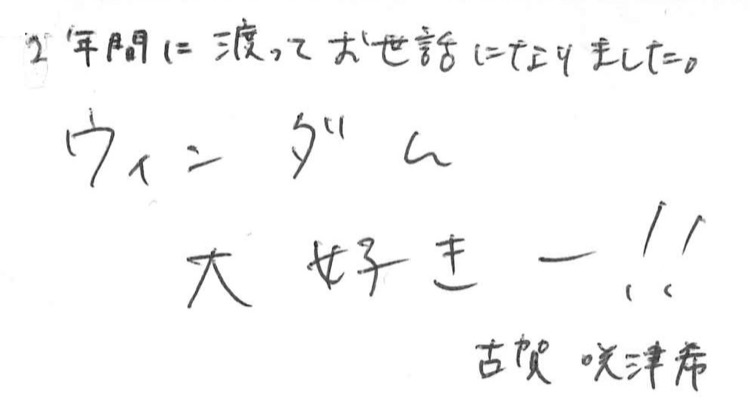 2年間に渡ってお世話になりました。
ウィンダム
大好きー!!
古賀 咲津希